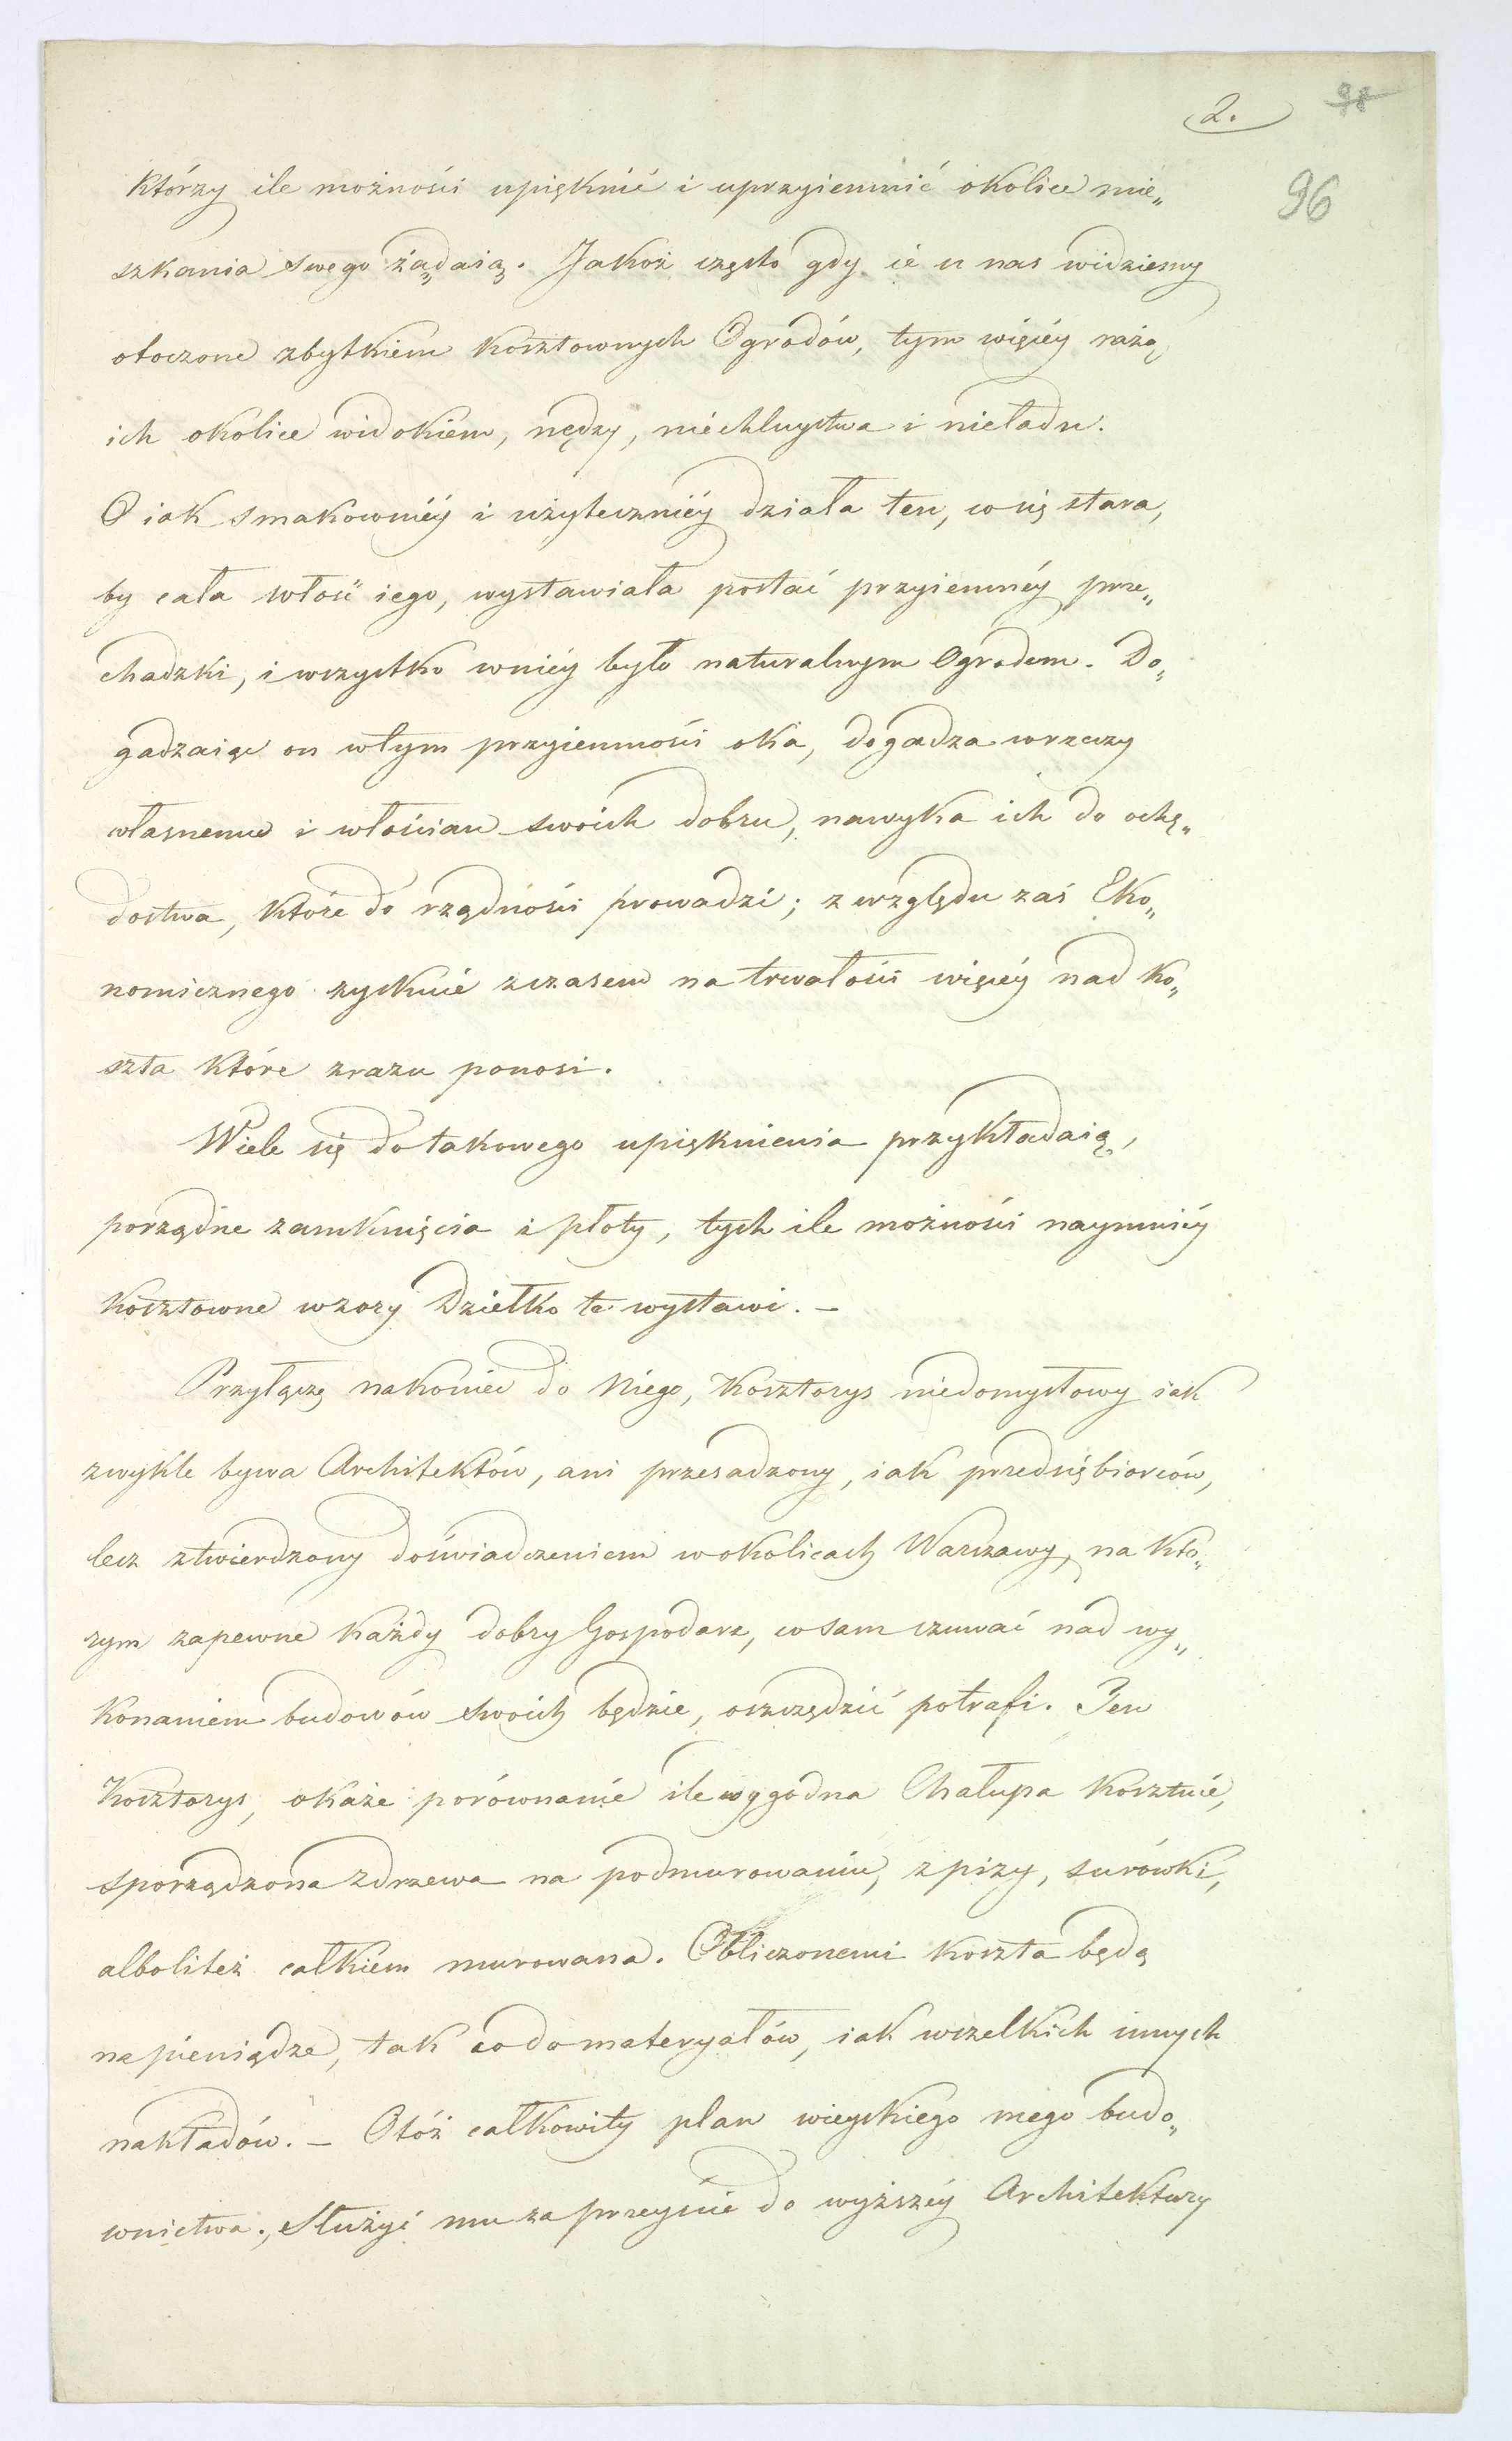 2.
98
96
którzy ile możności upięknić i uprzyiemnić okolice mie„
szkania swego żądaią. Jakoż często gdy ie u nas widziemy
otoczone zbytkiem kosztownych Ogrodów, tym więcéy rażą
ich okolice widokiem, nędzy, niechluystwa i nieładu.
O iak smakownièy i użytecznièy działa ten, co się stara,
by cała włość iego, wystawiała postać przyiemnéy prze„
chadzki, i wszystko wniéy było naturalnym Ogrodem. Do„
gadzaiąc on wtym przyiemności oka, dogadza wrzeczy
własnemu i włościan swoich dobru, nawyka ich do ochę„
dostwa, które do rządności prowadzi; z względu zaś Eko„
nomicznego zyskuie zczasem na trwałości więcéy nad ko„
szta które zrazu ponosi.
Wiele się do takowego upięknienia przykładaią,
porządne zamknięcia i płoty, tych ile możności naymniéy
kosztowne wzory Dziełko te wystawi. –
Przyłączę nakoniec do Niego, Kosztorys niedomysłowy iak
zwykle bywa Architektów, ani przesadzony, iak przedsiębiorców,
lecz ztwierdzony doświadczeniem wokolicach Warszawy, na któ„
rym zapewne każdy dobry Gospodarz, co sam czuwać nad wy„
konaniem budowów swoich będzie, oszczędzić potrafi. Ten
Kosztorys, okaże porównanie ile wygodna Chałupa kosztuie,
sporządzona zdrzewa na podmurowaniu, z pizy, surówki,
albolitéż całkiem murowana. Obliczonemi koszta będą
na pieniądze, tak codomateryałów, iak wszelkich innych
nakładów. – Otóż całkowity plan wieyskiego mego budo„
wnictwa., Służyć mu za przeyście do wyższéy Architektury